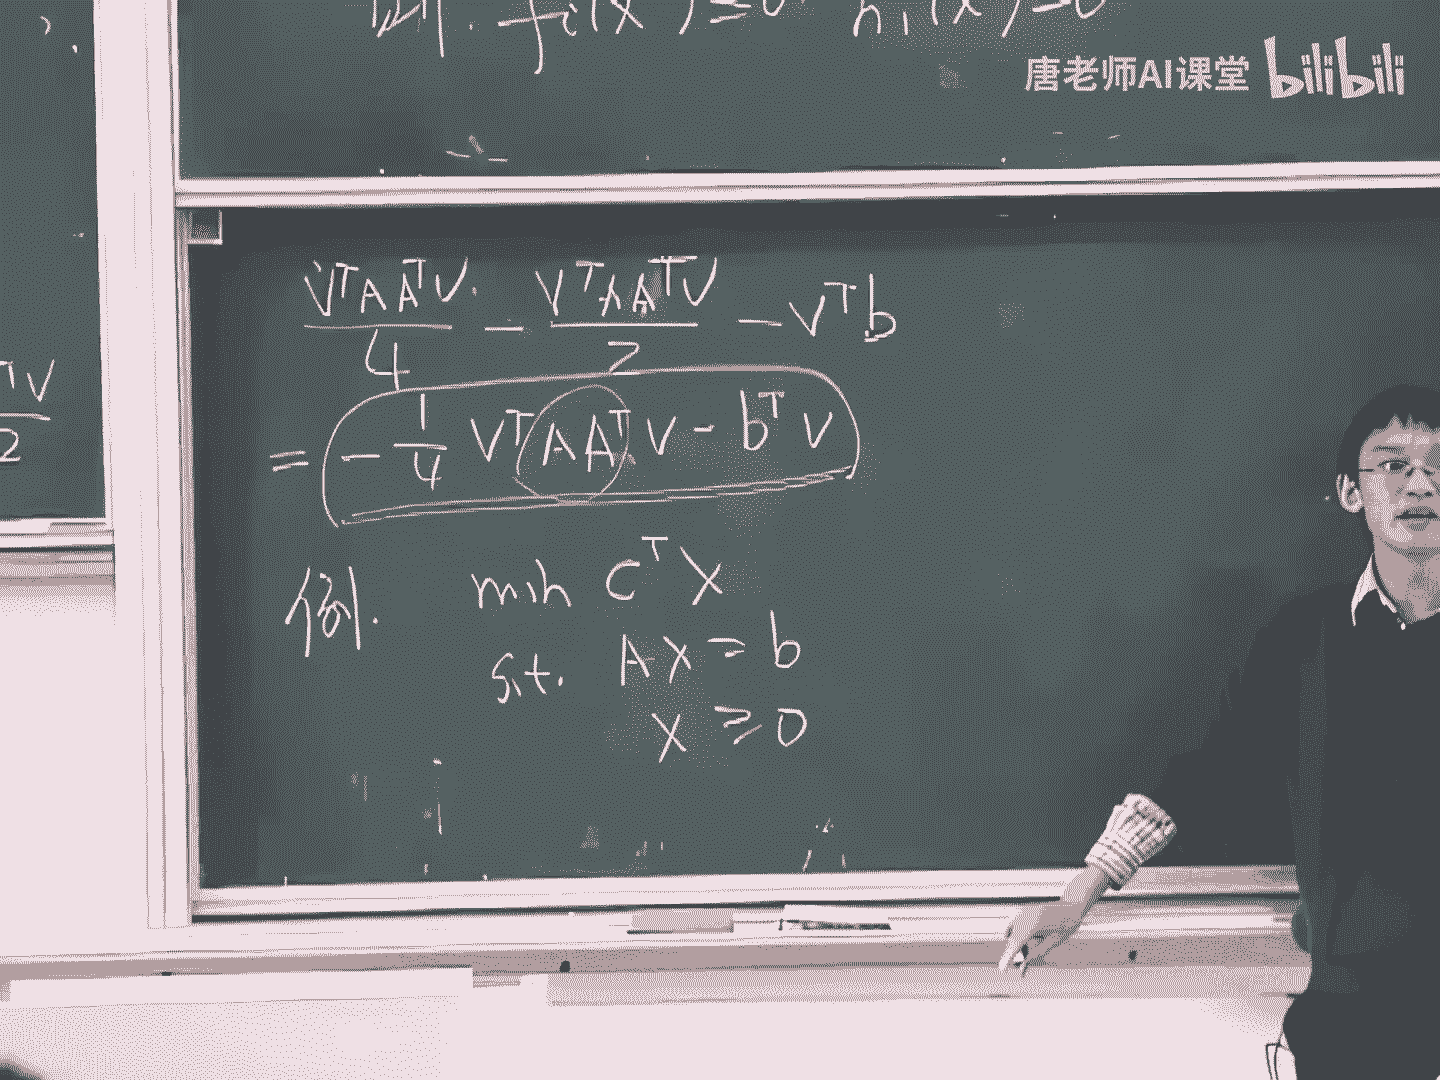 fᵢ(x) ≤ 0. hᵢ(x) = 0
唐老师AI课堂 bilibili
VᵀAAᵀV/4 - VᵀAAᵀV/2 - Vᵀb
= -1/4 VᵀAAᵀV - bᵀV
TV/2
例. min CᵀX
s.t. AX = b
X ≥ 0